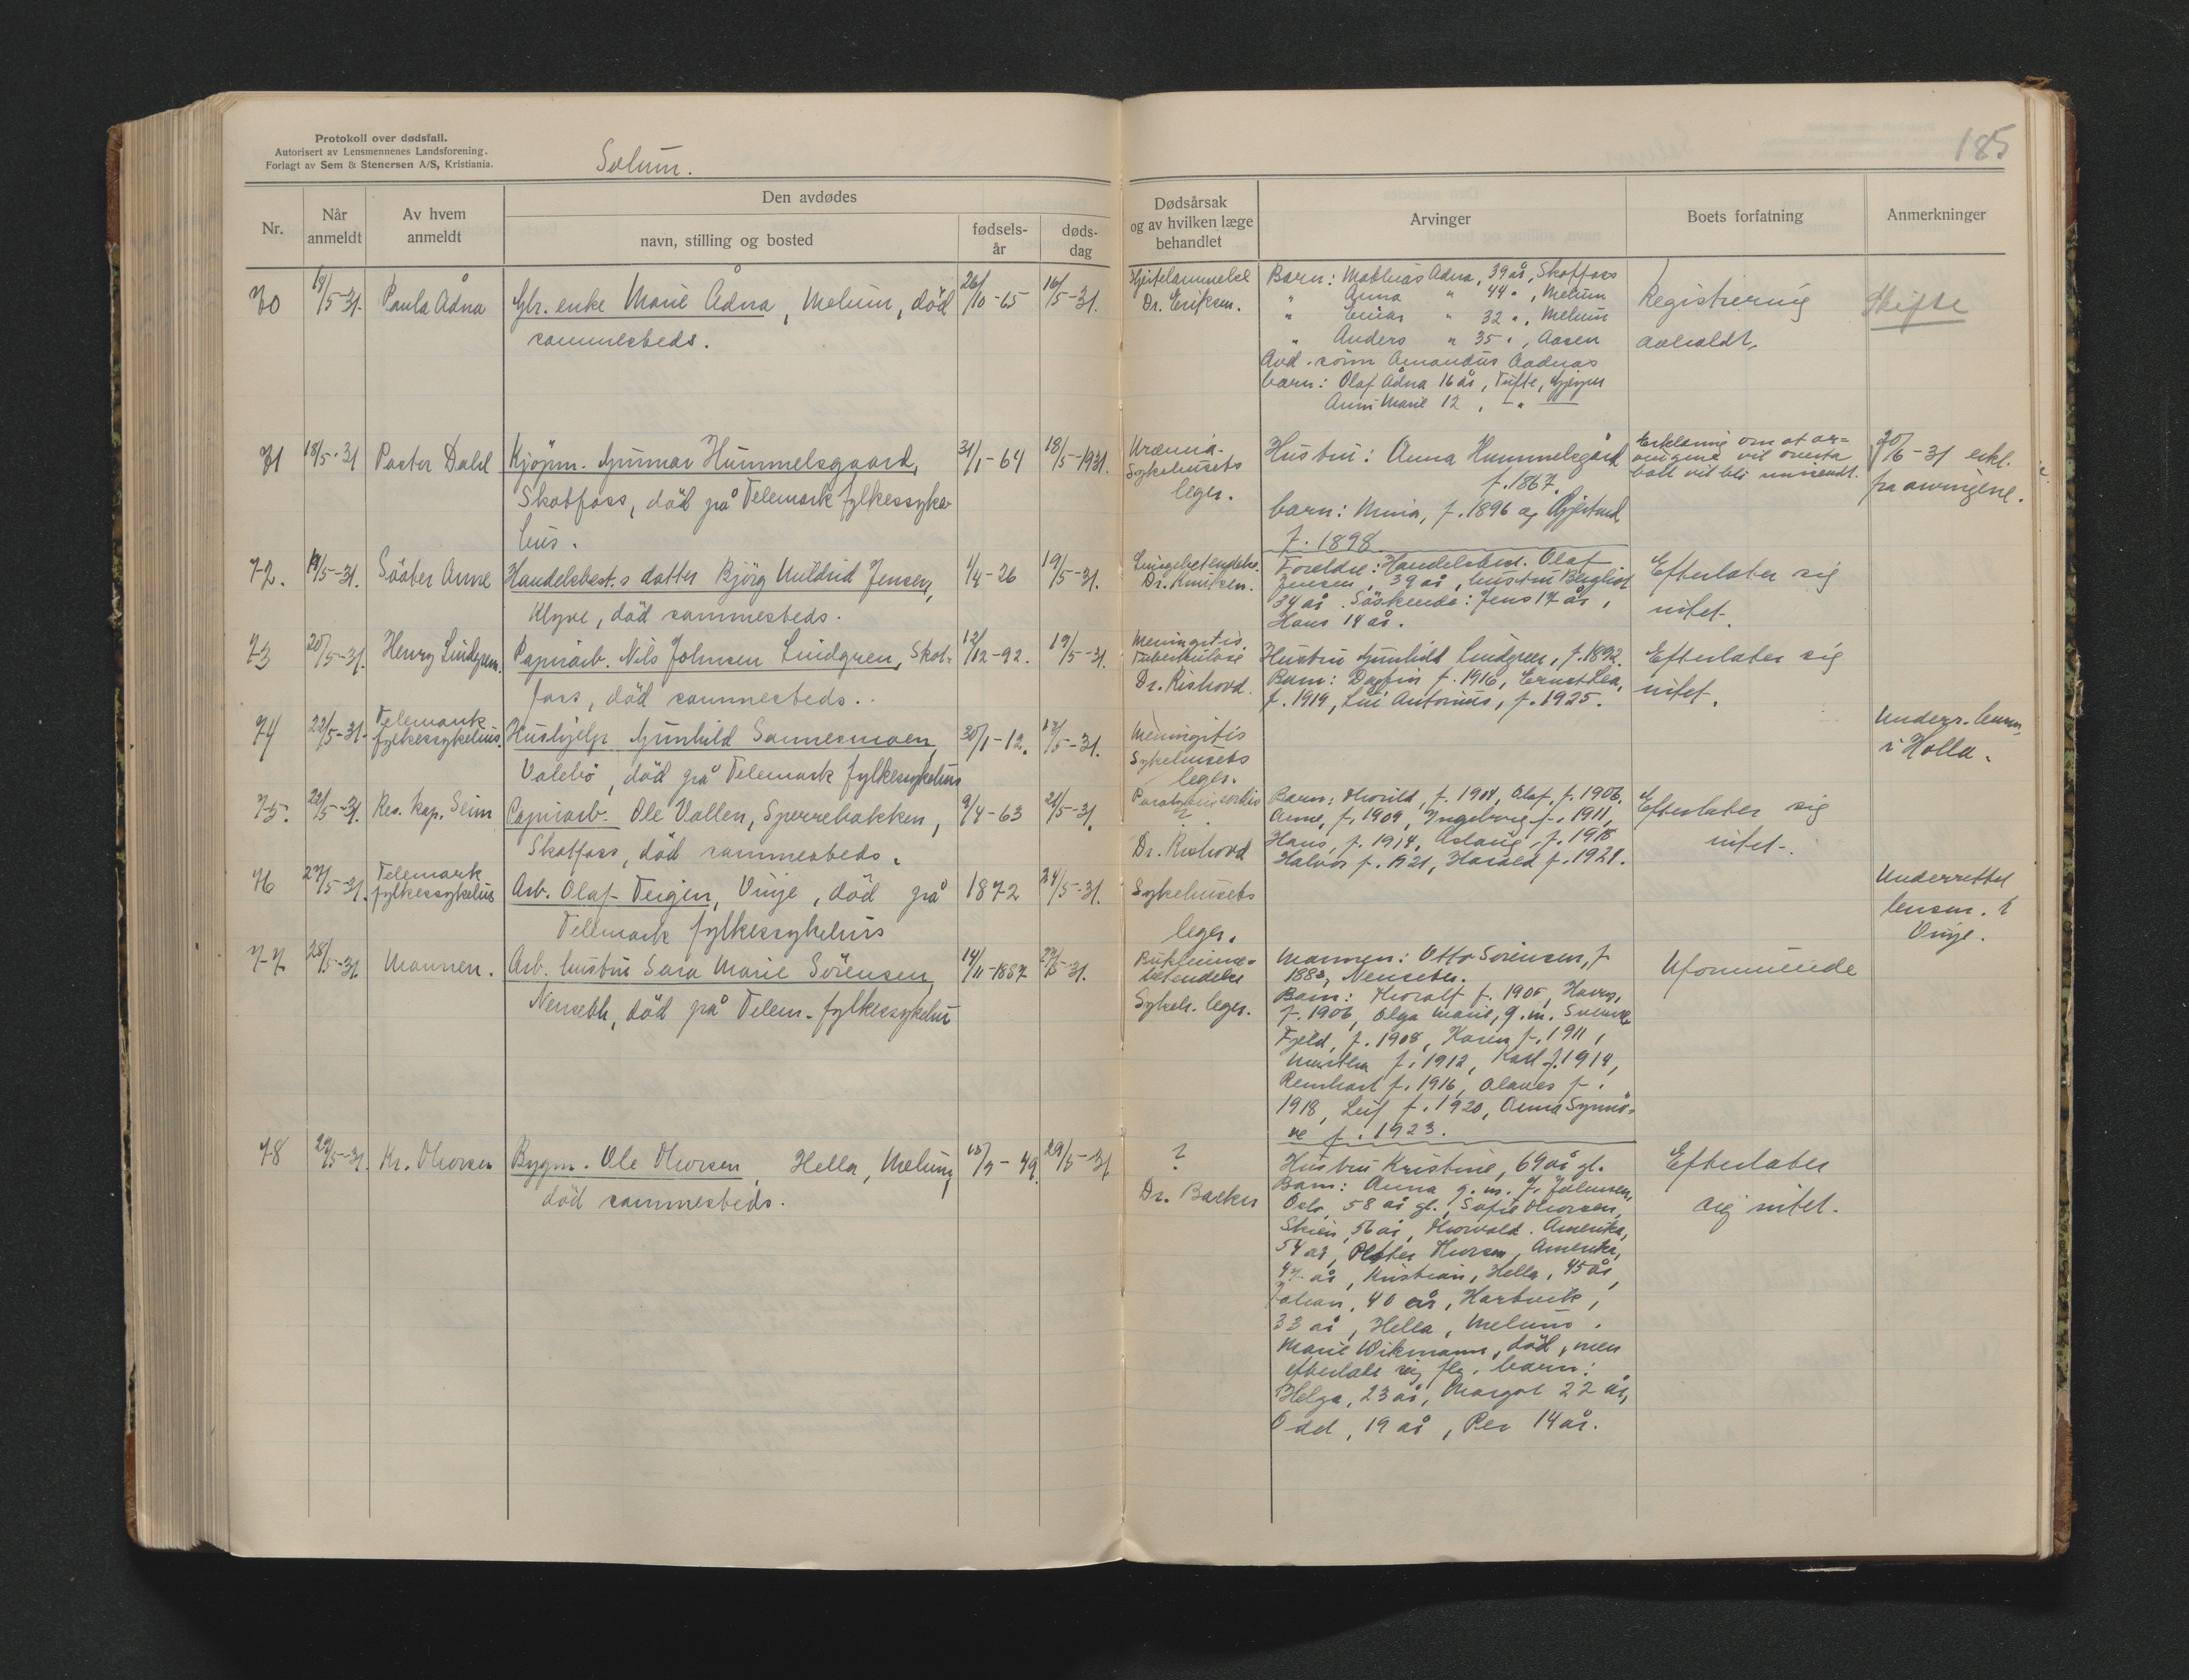 Protokoll over dødsfall.
Autorisert av Lensmennenes Landsforening.
Forlagt av Sem & Stenersen A/S, Kristiania.
Solum.
185
Nr.
Når anmeldt
Av hvem anmeldt
Den avdødes
navn, stilling og bosted
fødsels-år
døds-dag
Dødsårsak og av hvilken læge behandlet
Arvinger
Boets forfatning
Anmerkninger
70
19/5-31.
Paula Ådna
Gbr. enke Marie Ådna, Melum, död
sammesteds.
26/10-65
16/5-31.
Hjertelammelse
Dr. Eriksen.
Barn: Mathias Ådna, 39 år, Skotfoss
" Anna " 44 ", Melum
" Einar " 32 ", Melum
" Anders " 35 ", Aasen
Avd. sönn Amandus Aadnas
barn: Olaf Ådna 16 år, Tufte, Gjerpen
Anni Marie 12, - " -
Registrering
avholdt.
Skifte
71
18/5-31
Pastor Dahl
Kjöpm. Gunnar Hummelsgaard,
Skotfoss, död på Telemark fylkessyke-
hus.
31/1-64
18/5-1931.
Uræmia-
Sykehusets
leger.
Hustru: Anna Hummelsgård
f. 1867.
barn: Mina, f. 1896 og Gjertrud
f. 1898.
Erklæring om at ar-
vingene vil overta
boet vil bli innsendt.
20/6-31 erkl.
fra arvingene.
72.
19/5-31.
Söster Anne
Handelsbest.s datter Björg Undrid Jensen,
Klyve, död sammesteds.
1/4-26
19/5-31.
Lungebetendelse.
Dr. Knutsen.
Foreldre: Handelsbest. Olaf
Jensen, 39 år, hustru Bergliot
34 år. Söskende: Jens 17 år,
Hans 14 år.
Efterlater sig
intet.
73
20/5-31.
Henry Lindgren.
Papirarb. Nils Johnsen Lindgren, Skot-
foss, död sammesteds.
12/12-92.
19/5-31.
Meningitis
Tuberkulose
Dr. Rishovd.
Hustru Gunhild Lindgren, f. 1892.
Barn: Dagfin f. 1916, Ernst Lea,
f. 1919, Liv Antonius, f. 1925.
Efterlater sig
intet.
74
22/5-31.
Telemark
fylkessykehus.
Hushjelp Gunhild Sannesmoen,
Valebö, död på Telemark fylkessykehus
30/1-12.
17/5-31.
Meningitis
Sykehusets
leger.
Underr. lensm.
i Holla.
75.
22/5-31.
Res. kap. Seim
Papirarb. Ole Vallen, Sperrebakken,
Skotfoss, död sammesteds.
9/4-63
21/5-31.
Paralysis cordis
?
Dr. Rishovd
Barn: Thorild, f. 1904, Olaf, f. 1906.
Anne, f. 1909, Ingeborg f. 1911,
Hans, f. 1914, Aslaug, f. 1918
Halvor f. 1921, Harald f. 1921.
Efterlater sig
intet.
76
27/5-31.
Telemark
fylkessykehus
Arb. Olaf Teigen, Vinje, död på
Telemark fylkessykehus
1872
24/5-31.
Sykehusets
leger.
Underrettet
lensm. i
Vinje.
77
28/5-31.
Mannen.
Arb. hustru Sara Marie Sörensen,
Nenseth, död på Telem. fylkessykehus
14/11-1887
27/5-31.
Bukhinne-
betendelse
Sykeh. leger.
Mannen: Otto Sörensen, f
1883, Nenseter.
Barn: Thoralf f. 1905, Harry,
f. 1906, Olga Marie, g.m. Sverre
Fjeld, f. 1908, Karen f. 1911,
Martha f. 1912, Karl f. 1914,
Reinhart f. 1916, Olaves f.
1918, Leif f. 1920, Anna Synnö-
ve f. 1923.
Uformuende
78
29/5-31.
Kr. Thorsen
Bygm. Ole Thorsen, Hella, Melum,
död sammesteds.
15/7-49.
29/5-31
?
Dr. Backer
Hustru Kristine, 69 år gl.
Barn: Anna g.m. J. Johnsen,
Oslo, 58 år gl., Sofie Thorsen,
Skien, 56 år, Thorvald. Amerika,
54 år, Peter Thorsen, Amerika,
47 år, Kristian, Hella, 45 år,
Johan, 40 år, Hartvik,
33 år, Hella, Melum.
Marie Wikmann, död, men
efterlatt sig flg. barn:
Helga, 23 år, Margot 22 år,
Odd, 19 år, Per 14 år.
Efterlater
sig intet.